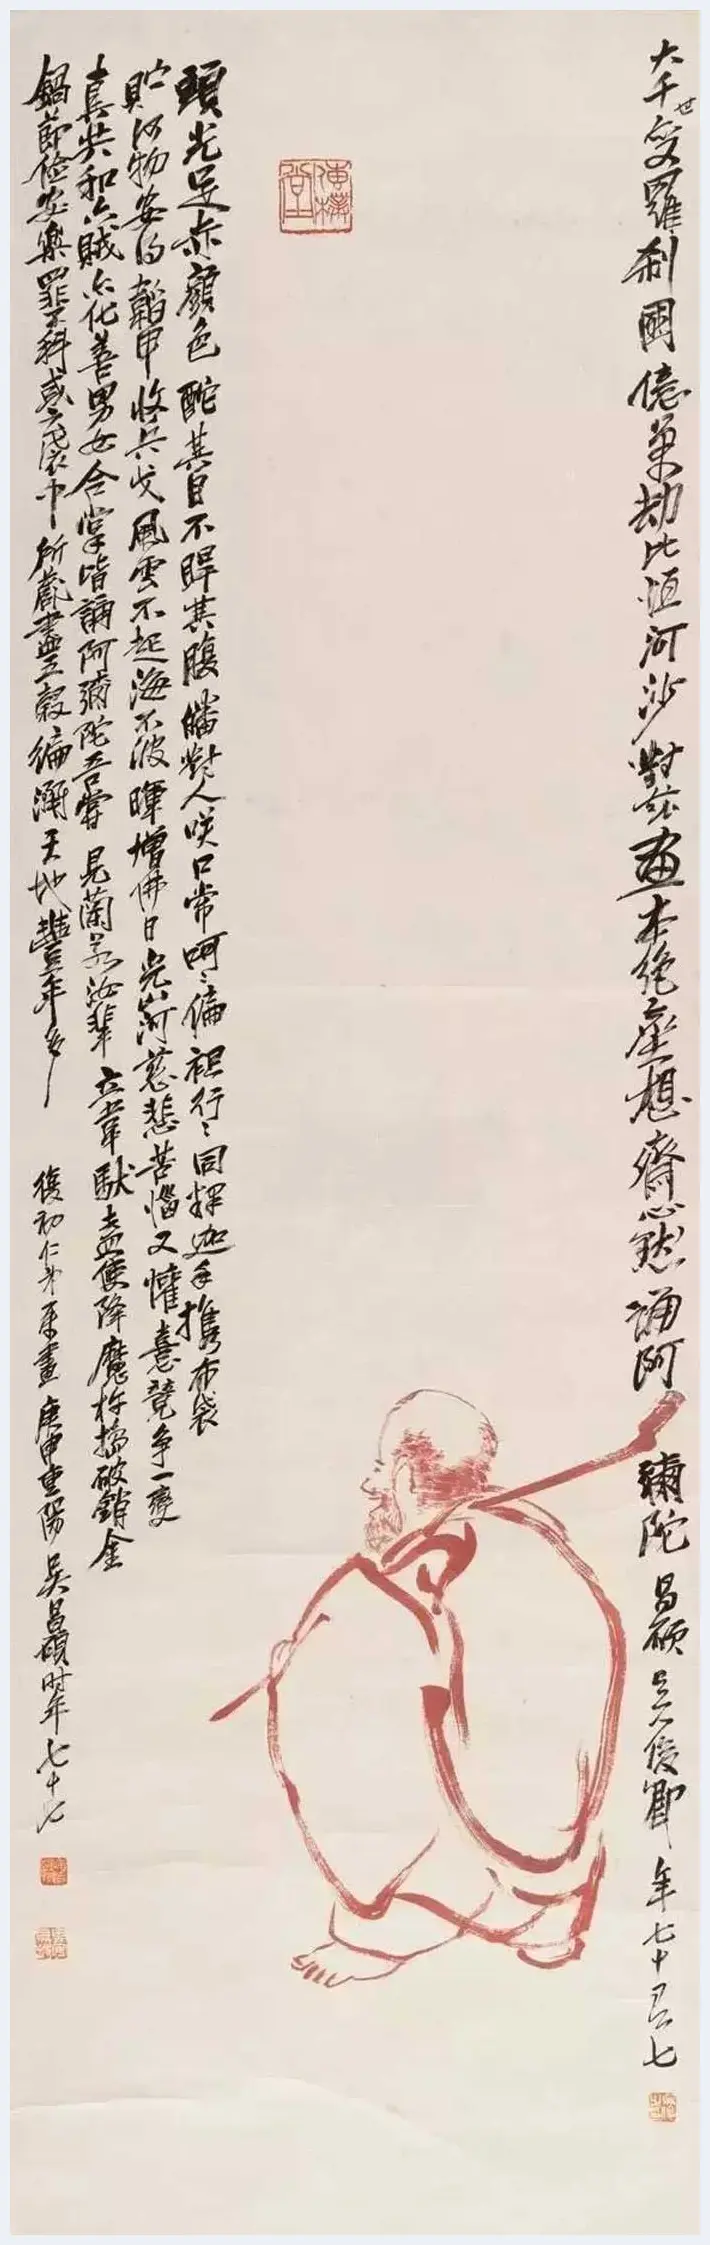 大千世變羅剎國億萬劫比恒河沙對茲畫本絕塵想齋心默誦阿彌陀昌碩吳俊卿年七十又七
頭光足赤顏色酡其目不睅其腹皤對人咲口常呵〻偏袒行〻同釋迦手攜布袋
貯何物妥為韜甲收兵戈風雲不起海不波暉增佛日光山河慈悲苦惱又懽喜競爭一變
真共和六賊亦化善男女合掌皆誦阿彌陀吾嘗見蘭若汝輩立韋馱盍使降魔杵搗破銷金
鍋節儉安樂罪不科或云袋中所藏盡五穀徧溯天地豐年多
復初仁弟屬畫庚申重陽吳昌碩時年七十七